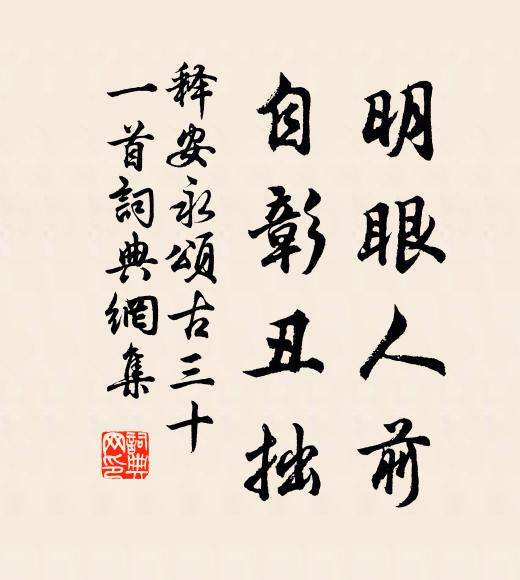 明眼人前
自彰丑拙
释安永頌古三十
一首詞典網集
詞典
网印